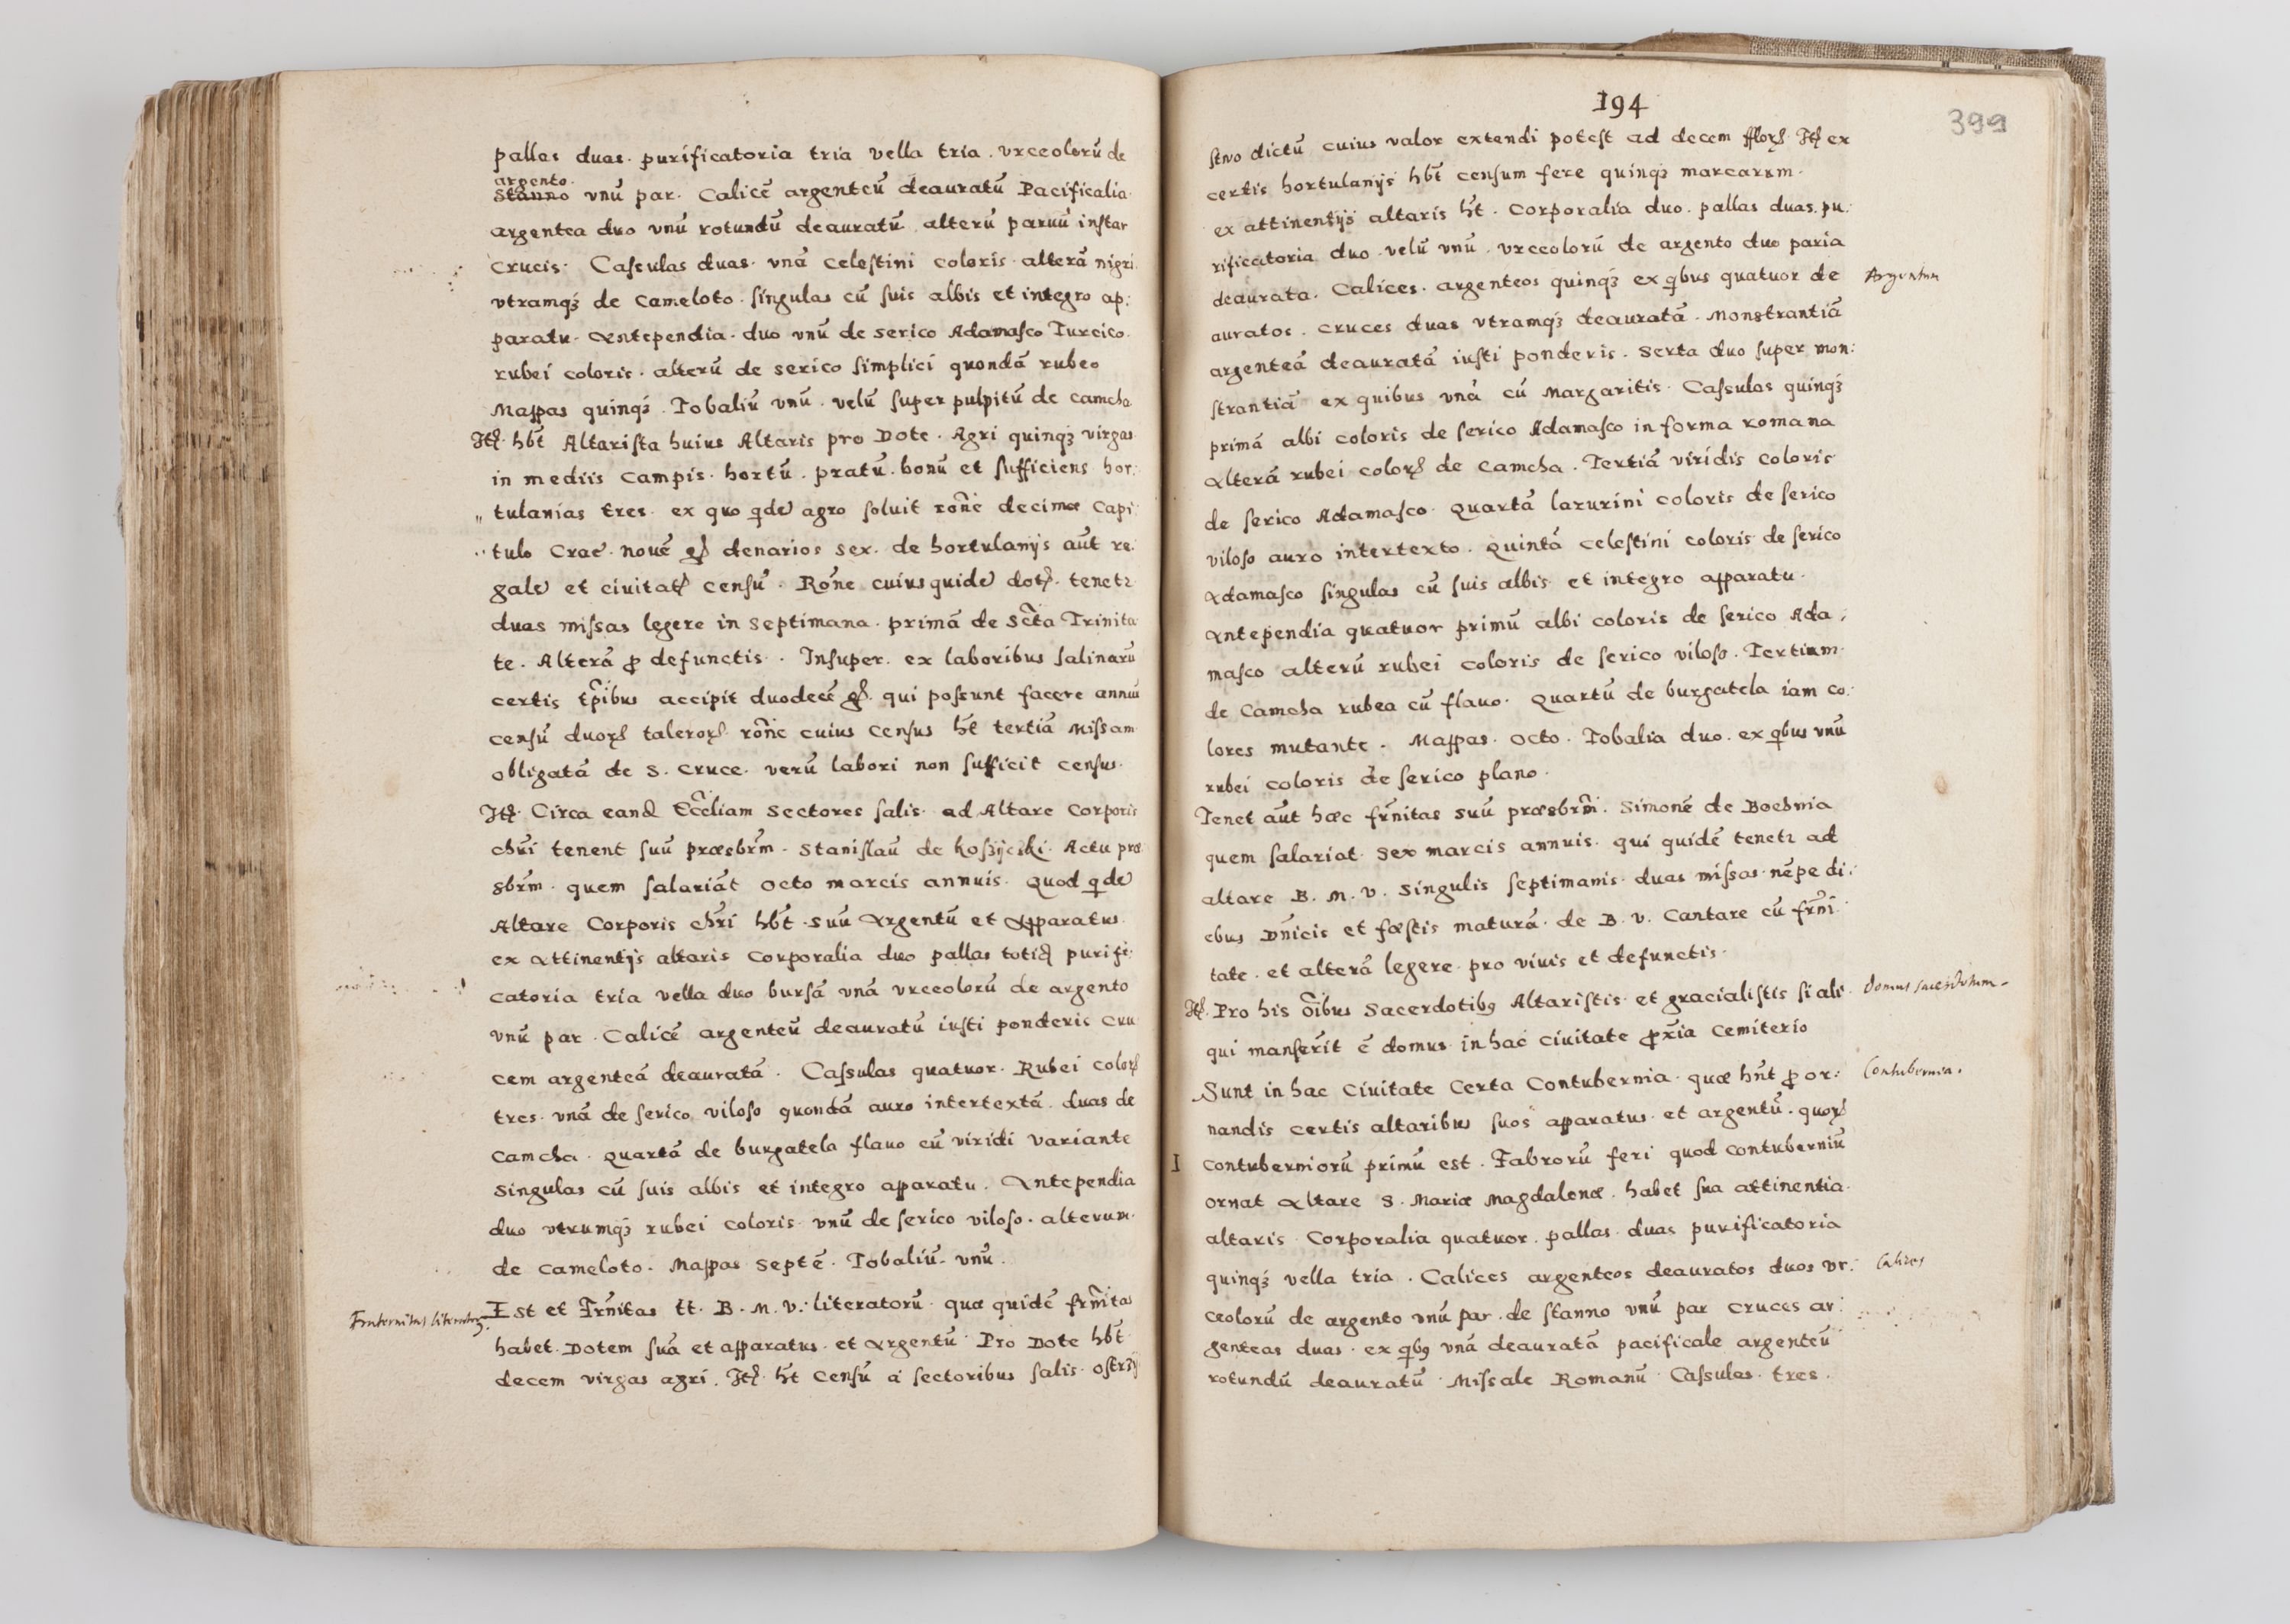 pallas duas. purificatoria tria vella tria. vrceolorũ de
argento.
Stanno vnũ par. Calicẽ argenteũ deauratũ Pacificalia.
argentea duo vnũ rotundũ deauratũ. alterũ paruũ inſtar
crucis. Caſculas duas. vnã celeſtini coloris. alterã nigri.
vtramqʒ de cameloto. ſingulas cũ ſuis albis et integro ap:
paratu. Antependia. duo vnũ de serico Adamaſco Turcico.
rubei coloris. alterũ de serico ſimplici quondã rubeo
Mappas quinqʒ. Tobaliũ vnũ. velũ ſuper pulpitũ de camcha
Itꝫ. hb̃t Altariſta huius Altaris pro Dote. Agri quinqʒ virgas
in mediis campis. hortũ. pratũ. bonũ et ſufficiens hor:
tulanias tres. ex quo qde agro ſoluit rõne decimæ Capi:
tulo Crac. nouẽ gꝭ denarios sex. de hortulanijs aũt re:
gale et ciuitatꝭ cenſũ. Rõne cuius quide dotꝭ. tenetꝛ
duas miſsas legere in septimana. primã de Sc̃ta Trinita
te. Alterã ꝓ defunctis. Inſuper. ex laboribus ſalinarũ
certis tp̃ibus accipit duodecẽ gꝭ. qui poſsunt facere annuũ
cenſũ duorꝭ talerorꝭ. rõne cuius cenſus hẽt tertiã Miſsam
obligatã de S. Cruce. verũ labori non ſufficit cenſus.
Itꝫ. Circa eand Ecc̃liam Sectores ſalis. ad Altare Corporis
chr̃i tenent ſuũ præsbr̃m. Stanislaũ de koſzijcski. Actu præ
sbr̃m. quem ſalariãt octo marcis annuis. Quod qde
Altare Corporis chr̃i hb̃t. Suũ Argentũ et Apparatus.
ex Attinentijs altaris Corporalia duo pallas totiꝺ purifi:
catoria tria vella duo burſã vnã vrceolorũ de argento
vnũ par. Calicẽ argenteũ deauratũ iuſti ponderis cru
cem argenteã deauratã. Caſsulas quatuor. Rubei colorꝭ
tres. vnã de ſerico viloſo quondã auro intertextã. duas de
camcha. quartã de burgatela flauo cũ viridi variante
singulas cũ ſuis albis et integro apparatu. Antependia
duo vtrumqʒ rubei coloris. vnũ de ſerico viloſo. alterum.
de cameloto. Mappas septẽ. Tobaliũ. vnũ.
Fraternitas literatorꝭ.
Est et Fr̃nitas tt. B. M. V. literatorũ. quæ quidẽ fr̃nitas
habet. Dotem ſuã et apparatus. et Argentũ Pro Dote hb̃t
decem virgas agri. Itꝫ. hẽt Cenſũ a ſectoribus ſalis. oſtrzij
194
399
ſtwo dictũ cuius valor extendi poteſt ad decem fflorꝭ. Itꝫ ex
certis hortulanijs hb̃t cenſum fere quinqʒ marcarum.
ex attinentijs altaris hẽt. Corporalia duo. pallas duas. pu:
rificatoria duo. velũ vnũ. vrceolorũ de argento duo paria
deaurata. Calices. argenteos quinqʒ ex qbus quatuor de
Argentum
auratos. cruces duas vtramqʒ deauratã. Monstrantiã
argenteã deauratã iuſti ponderis. Serta duo ſuper mon:
ſtrantiã ex quibus vnã cũ Margaritis. Caſsulas quinqʒ
primã albi coloris de ſerico Adamaſco in forma romana
Alterã rubei colorꝭ de camcha. Tertiã viridis coloris
de ſerico Adamaſco. Quartã lazurini coloris de ſerico
viloſo auro intertexto. Quintã celeſtini coloris de ſerico
Adamaſco ſingulas cũ ſuis albis et integro apparatu.
Antependia quatuor primũ albi coloris de ſerico Ada:
maſco alterũ rubei coloris de ſerico viloſo. Tertium.
de Camcha rubea cũ flauo. Quartũ de burgatela iam co:
lores mutante. Mappas. octo. Tobalia duo. ex qbus vnũ
rubei coloris de ſerico plano.
Tenet aũt hæc fr̃nitas suũ præsbr̃m. Simonẽ de Bochnia
quem ſalariat. sex marcis annuis. qui quidẽ tenetꝛ ad
altare B. M. V. singulis ſeptimanis. duas miſsas. nẽpe di:
ebus Dñicis et fæſtis maturã. de B. V. Cantare cũ fr̃ni:
tate. et alterã legere. pro viuis et defunctis.
Itꝫ. Pro his õibus Sacerdotibꝰ Altariſtis et gracialiſtis ſi ali
Domus sacerdotum.
qui manſerĩt ẽ domus in hac ciuitate ꝓxĩa cemiterio
Sunt in hac ciuitate certa Contubernia. quæ hñt ꝓ or:
Contubernia.
nandis certis altaribus ſuos apparatus. et argentũ. quorꝭ
I
contuberniorũ primũ est. Fabrorũ feri quod contuberniũ
ornat Altare S. Mariæ Magdalenæ. habet ſua attinentia.
altaris Corporalia quatuor. pallas. duas purificatoria
quinqʒ vella tria. Calices argenteos deauratos duos vr:
Calices
ceolorũ de argento vnũ par. de ſtanno vnũ par cruces ar:
genteas duas. ex qbꝰ vnã deauratã pacificale argenteũ
rotundũ deauratũ. Miſsale Romanũ. Caſsulas. tres.